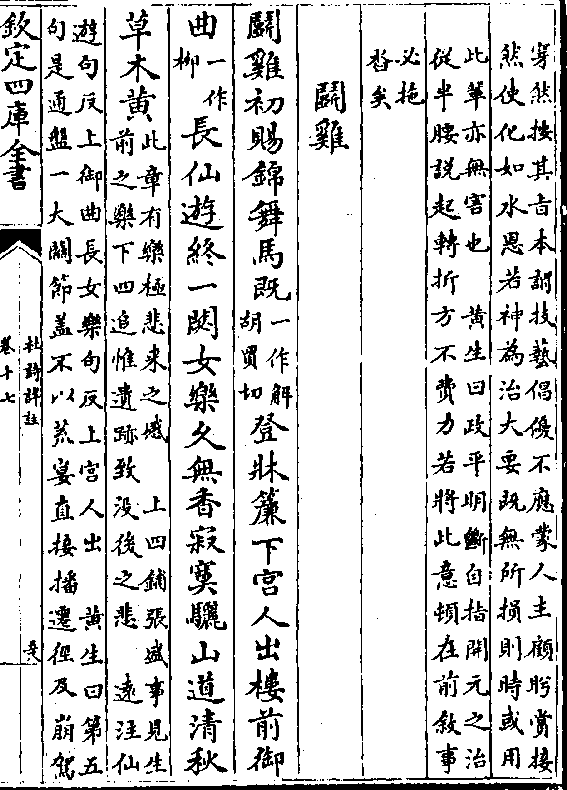 穿然按其旨本謂技藝倡優不應蒙人主顧盻賞接
然使化如水恩若神為治大要既無所損則時或用
此輩亦無害也　黄生曰政平明斷自指開元之治
從半腰說起轉折方不費力若將此意頓在前敘事
必拖
沓矣
鬬雞
鬬雞初賜錦舞馬既一作解胡買切登牀簾下宮人出樓前御
曲一作柳長仙遊終一閟女樂久無香寂寞驪山道清秋
草木黄此章有樂極悲来之感　上四鋪張盛事見生
前之樂下四追惟遺跡致沒後之悲　遠注仙
遊句反上御曲長女樂句反上宮人出　黄生曰第五
句是通盤一大關節盖不以荒宴直接播遷徑及崩駕
欽定四庫全書
杜詩詳註
卷十七